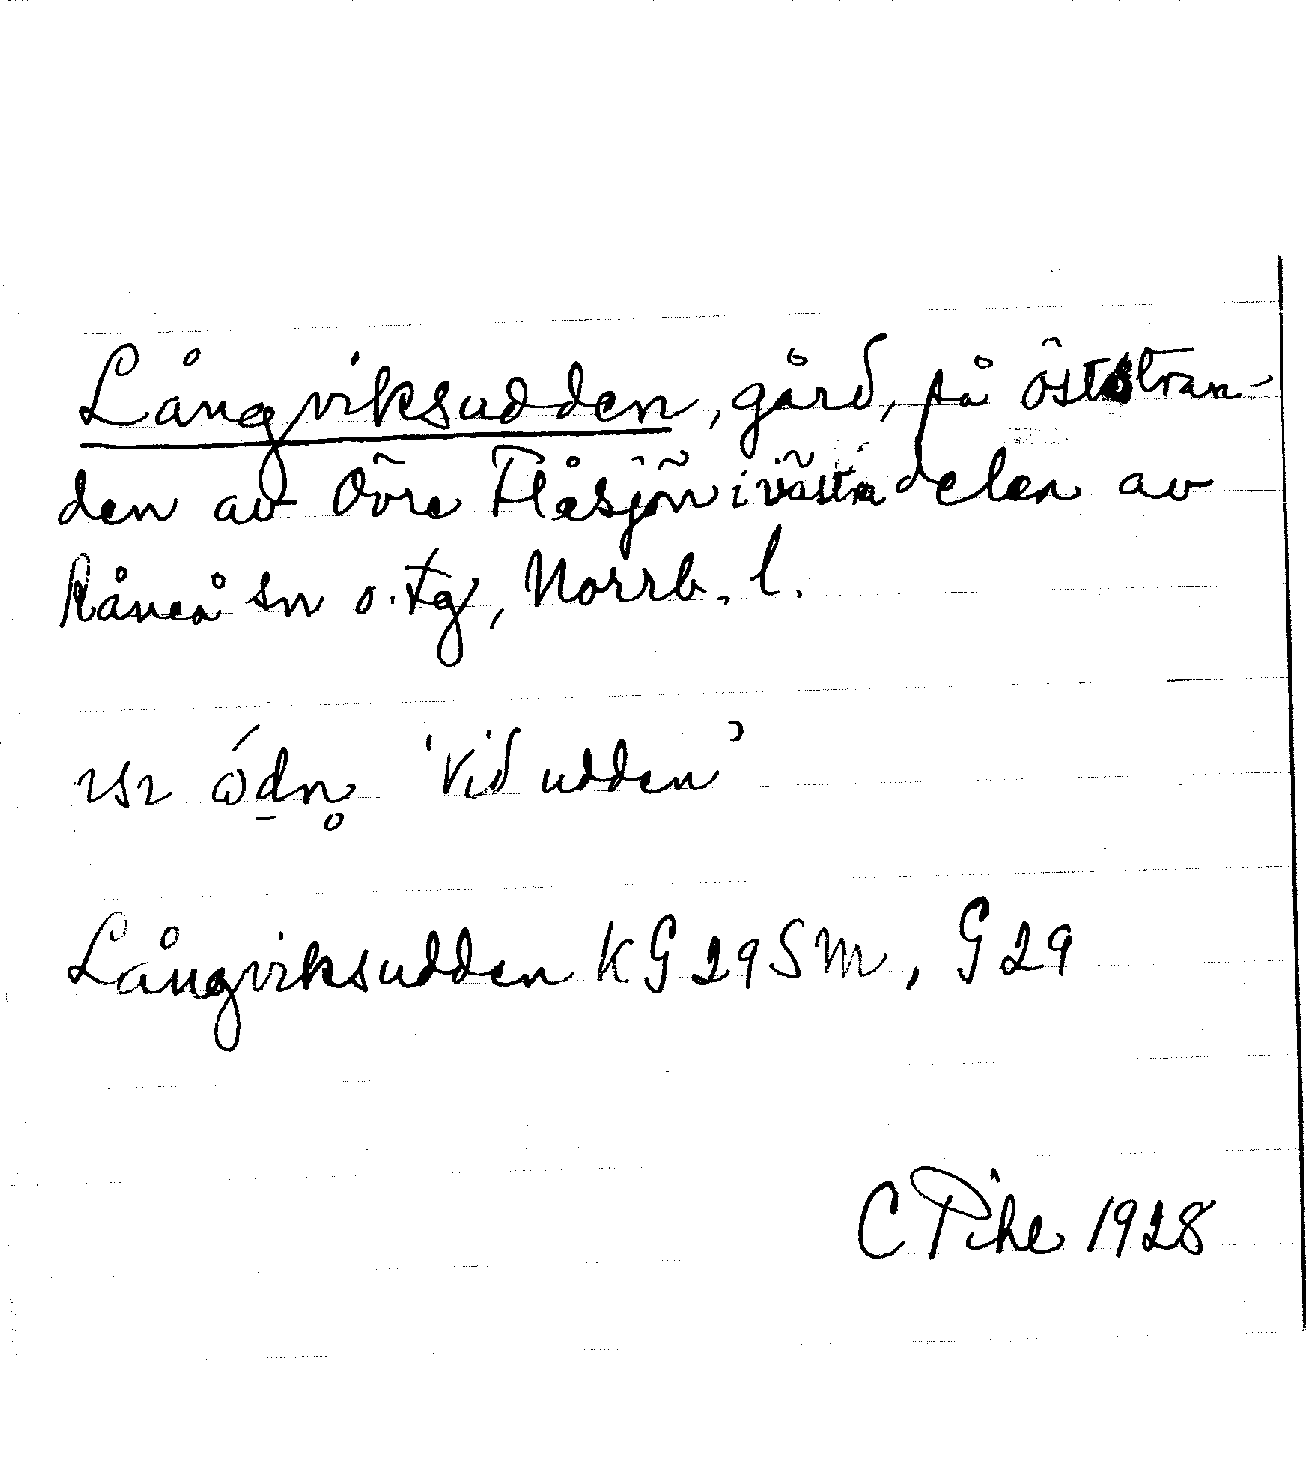 Långviksudden, gård, på öststran-
den av Övre Flåsjön i västra delen av
Råneå sn o. tg, Norrb. l.
'Vid udden'
Långviksudden KG 29 SM, G 29
C Pihl 1928